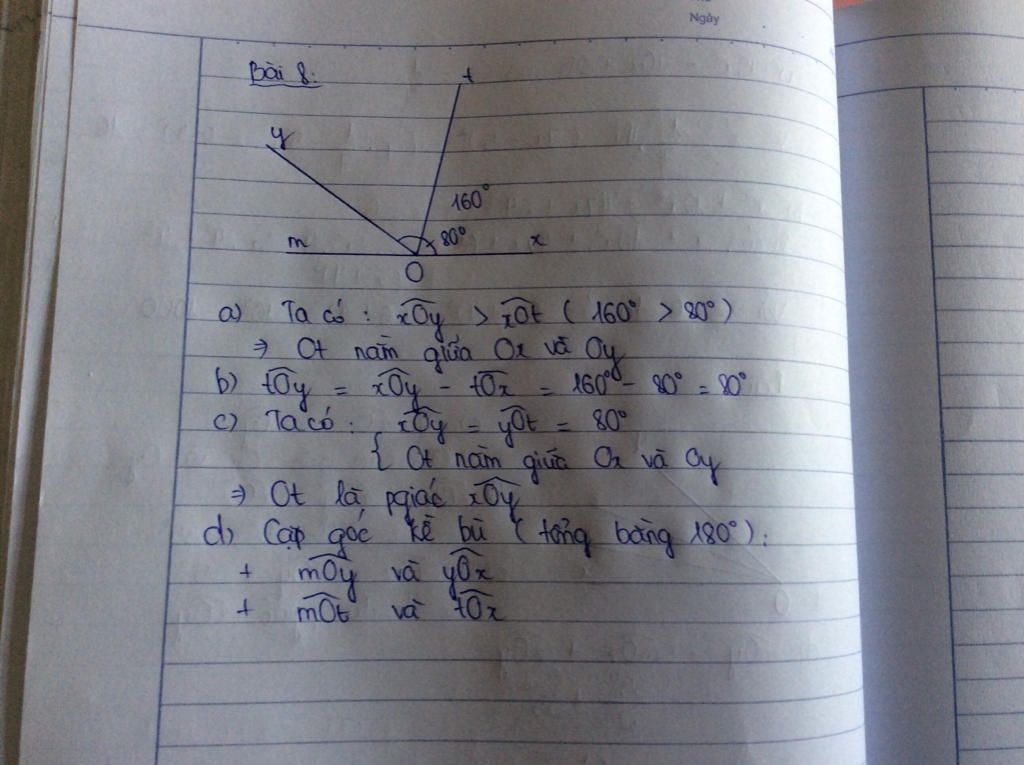 Ngày
Bài 8:
t
y
160°
m
80°
x
O
a) Ta có : xOy > xOt ( 160° > 80° )
⇒ Ot nằm giữa Ox và Oy
b) tOy = xOy - tOx = 160° - 80° = 80°
c) Ta có : xOy = yOt = 80°
{ Ot nằm giữa Ox và Oy
⇒ Ot là pgiác xOy
d) Cặp góc kề bù ( tổng bằng 180° ) :
+ mOy và yOx
+ mOt và tOx